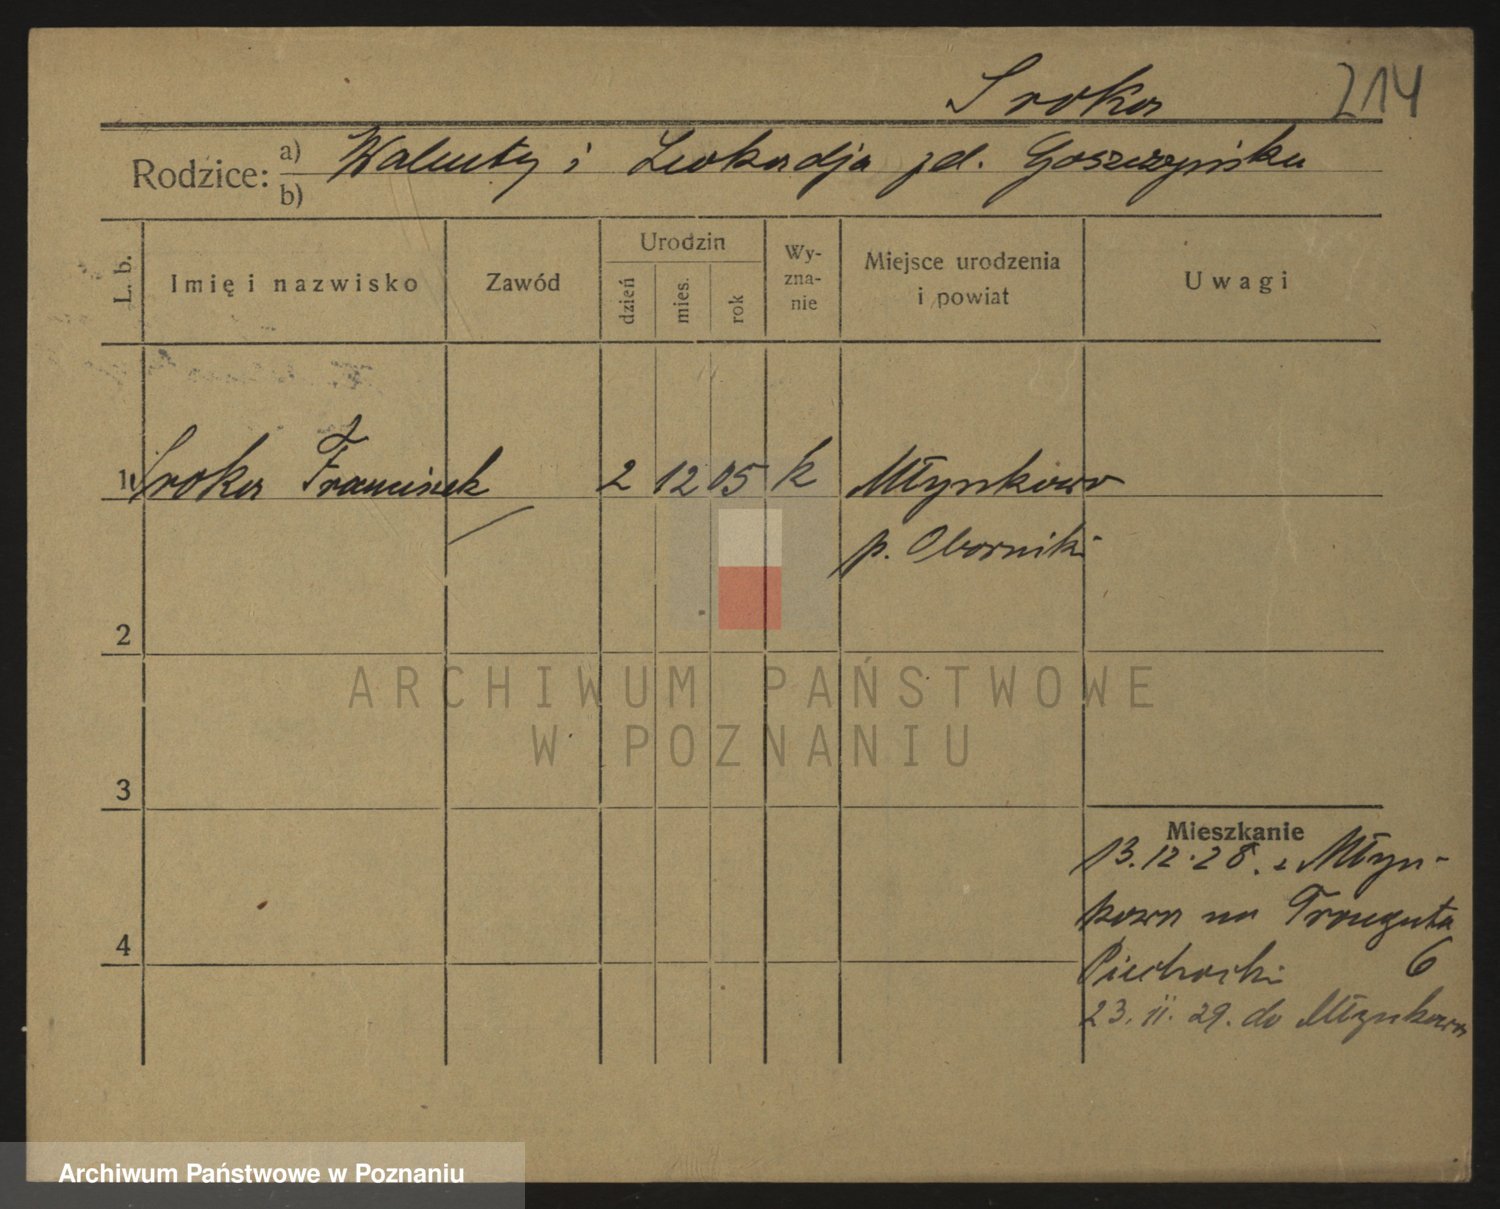 Sroka 214
Rodzice: a) Walenty i Leokadja zd. Goszczyńska
b)
L. b. Imię i nazwisko Zawód Urodzin dzień mies. rok Wy-
zna-
nie Miejsce urodzenia
i powiat Uwagi
1 Sroka Franciszek 2 12 05 k Młynkowo
p. Oborniki
2
ARCHIWUM PAŃSTWOWE
W POZNANIU
3
Mieszkanie
13.12.28. z Młyn-
kowa na Trauguta
4
Piechocki 6
23.11.29. do Młynkowa
Archiwum Państwowe w Poznaniu